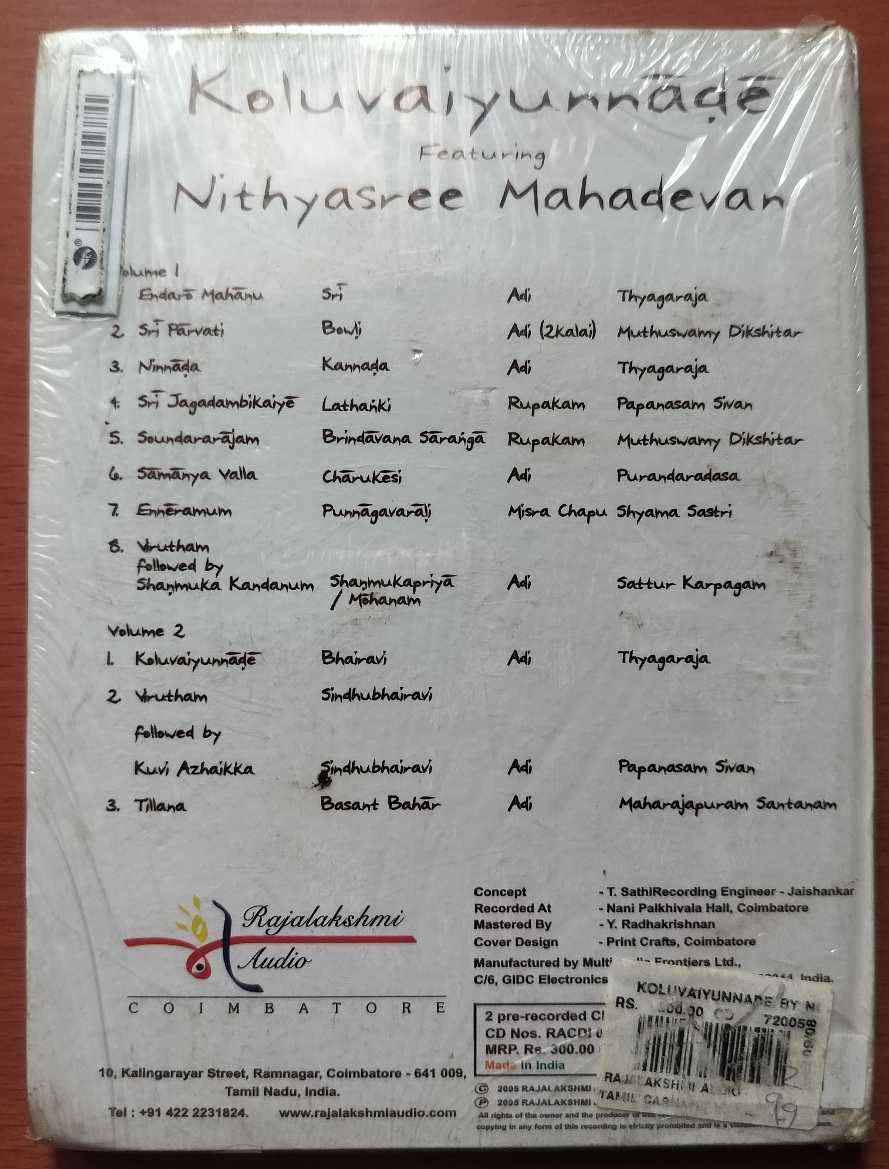 Koluvaiyunnāḍē
Featuring
Nithyasree Mahadevan
Volume 1
Endarō Mahānu Srī Adi Thyagaraja
2. Srī Pārvati Bowḷi Adi (2Kalai) Muthuswamy Dikshitar
3. Ninnāḍa Kannaḍa Adi Thyagaraja
4. Srī Jagadambikaiyē Lathāṅki Rupakam Papanasam Sivan
5. Soundararājam Brindāvana Sāraṅgā Rupakam Muthuswamy Dikshitar
6. Sāmānya Valla Chārukēsi Adi Purandaradasa
7. Ennēramum Punnāgavarāḷi Misra Chapu Shyama Sastri
8. Virutham
followed by
Shaṇmuka Kandanum Shaṇmukapriyā Adi Sattur Karpagam
/ Mōhanam
Volume 2
1. Koluvaiyunnāḍē Bhairavi Adi Thyagaraja
2. Virutham Sindhubhairavi
followed by
Kuvi Azhaikka Sindhubhairavi Adi Papanasam Sivan
3. Tillana Basant Bahār Adi Maharajapuram Santanam
Rajalakshmi
Audio
COIMBATORE
10, Kalingarayar Street, Ramnagar, Coimbatore - 641 009,
Tamil Nadu, India.
Tel : +91 422 2231824. www.rajalakshmiaudio.com
Concept - T. SathiRecording Engineer - Jaishankar
Recorded At - Nani Palkhivala Hall, Coimbatore
Mastered By - Y. Radhakrishnan
Cover Design - Print Crafts, Coimbatore
Manufactured by Frontiers Ltd.,
C/6, GIDC Electronics India.
2 pre-recorded
CD Nos. RACDI
MRP. Rs. 300.00
Made in India
© 2005 RAJALAKSHMI
℗ 2005 RAJALAKSHMI
All rights of the owner and the producer of
copying in any form of this recording is strictly prohibited and
KOLUVAIYUNNADE BY
RS. CD 72005
RAJALAKSHMI AUDIO
TAMIL
99